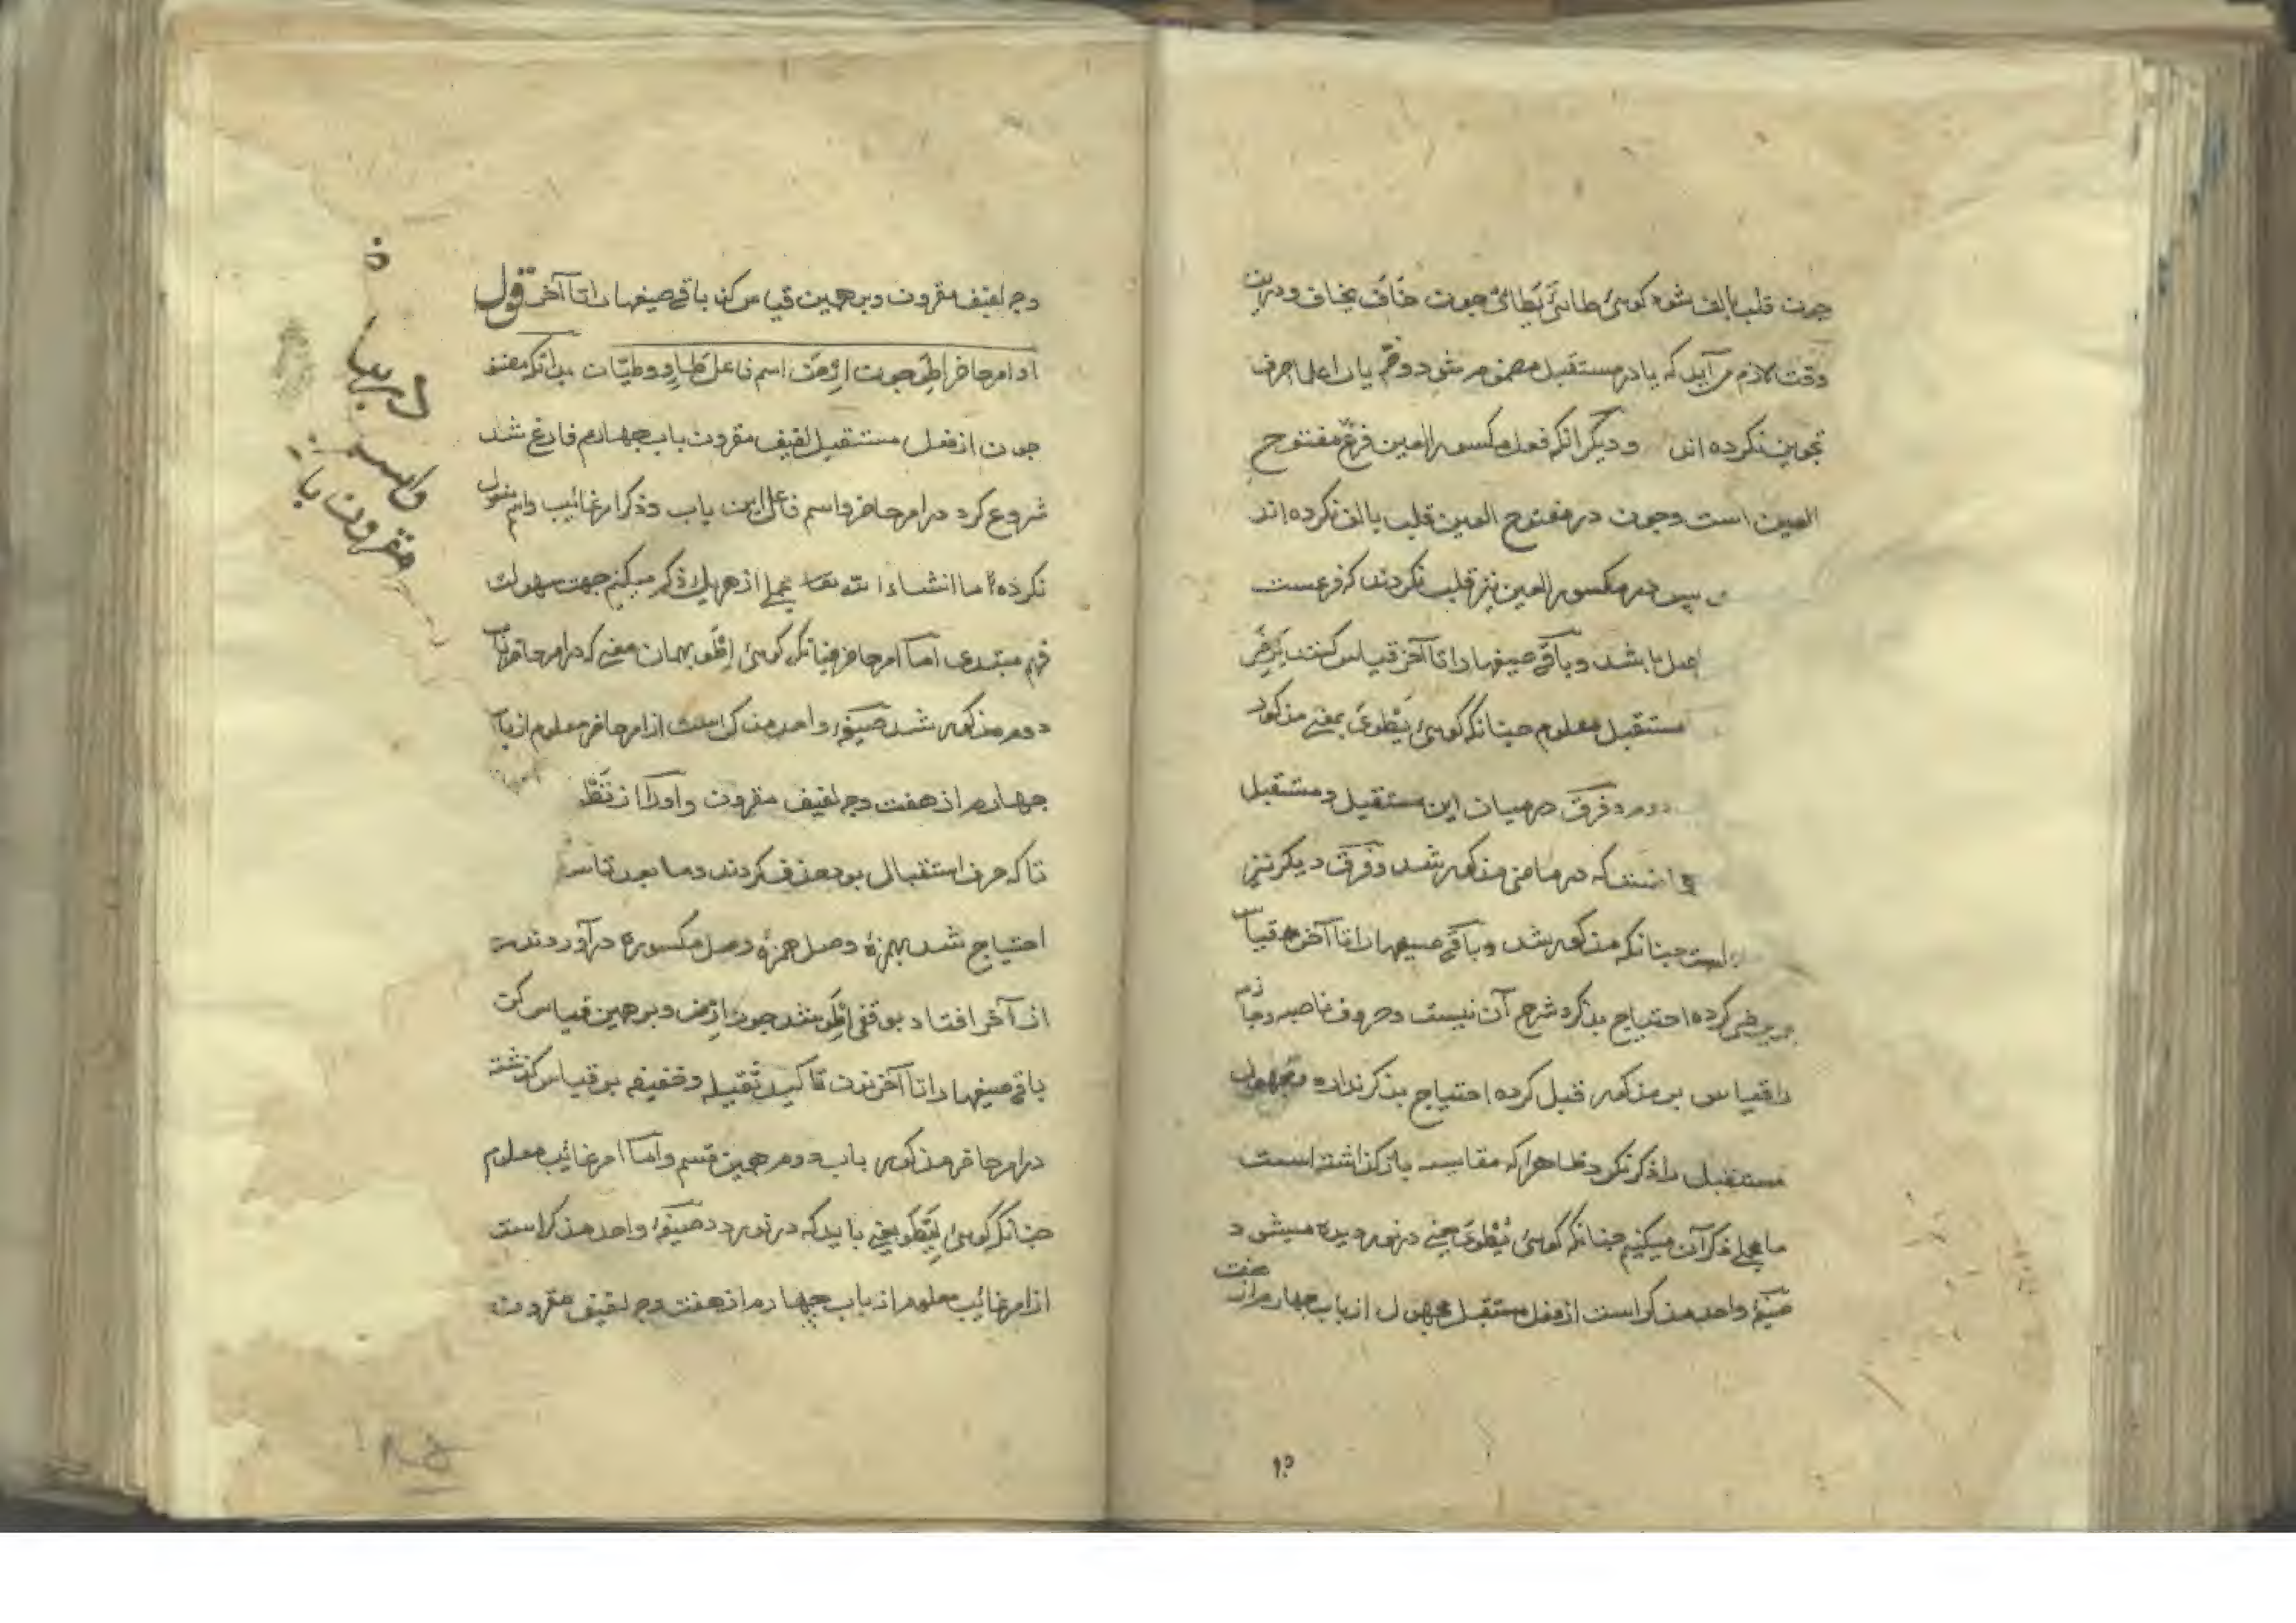 چون قلب بالف شود کوئی طائ یطائ چون خاف یخاف و درین
وقت لازم می آید که یا در مستقبل مضموم شود و ضم یا را علماء صرف
تجویز نکرده اند و دیگر انکه فعل مکسور العین فرع مفتوح
العین است و چون در مفتوح العین قلب بالف نکرده اند
پس در مکسور العین نیز قلب نکردند که فرعست
اصل باشد و باقی صیغها را تا آخر قیاس کنند
مستقبل معلوم چنانکه کوئی یطوی بمعنی مذکور
دوم و فرق درمیان این مستقبل و مستقبل
که در ماضی مذکور شد و فرق دیکر نیز
است چنانکه مذکور شد و باقی صیغها را تا آخر قیاس
کرده احتیاج بذکر و شرح آن نیست و حروف ناصبه و جازم
را قیاس بر مذکور قبل کرده احتیاج بذکر ندارد و مجهول
مستقبل را ذکر نکرد ظاهرا که مقایسه باز کذاشته است
ما مجملی ذکر آن میکنیم چنانکه کوئی یطوی یعنی در نوردیده میشود
صیغه واحد مذکر است از فعل مستقبل مجهول از باب چهارم از هفت
وجه لفیف مقرون و برهمین قیاس کن باقی صیغها را تا آخر قوله
او امر حاضر اطو چون ارض اسم فاعل طاو و طیان بدانکه مصنف
چون از فعل مستقبل لفیف مقرون باب چهارم فارغ شد
شروع کرد در امر حاضر و اسم فاعل این باب و ذکر امر غائب و اسم مفعول
نکرده اما انشاء الله تعا مجملی از هریک ذکر میکنیم جهت سهولت
فهم مبتدی اما امر حاضر چنانکه کوئی اطو بهمان معنی که در امر حاضر باب
دوم مذکور شد صیغه واحد مذکر است از امر حاضر معلوم از باب
چهارم از هفت وجه لفیف مقرون و او را از
تا که حرف استقبال بود حذف کردند و ما بعد تا
احتیاج شد بهمزه وصل همزه وصل مکسوره در آوردند
از آخر افتاد بوقفی اطو شد چون ارض و برهمین قیاس کن
باقی صیغها را تا آخر نون تاکید ثقیله و خفیفه بر قیاس کذشته
در امر حاضر مذکور باب دوم همین قسم و اما امر غائب معلوم
چنانکه کوئی لیطو یعنی باید که در نوردد صیغه واحد مذکر است
از امر غائب معلوم از باب چهارم از هفت وجه لفیف مقرون
مقرون با